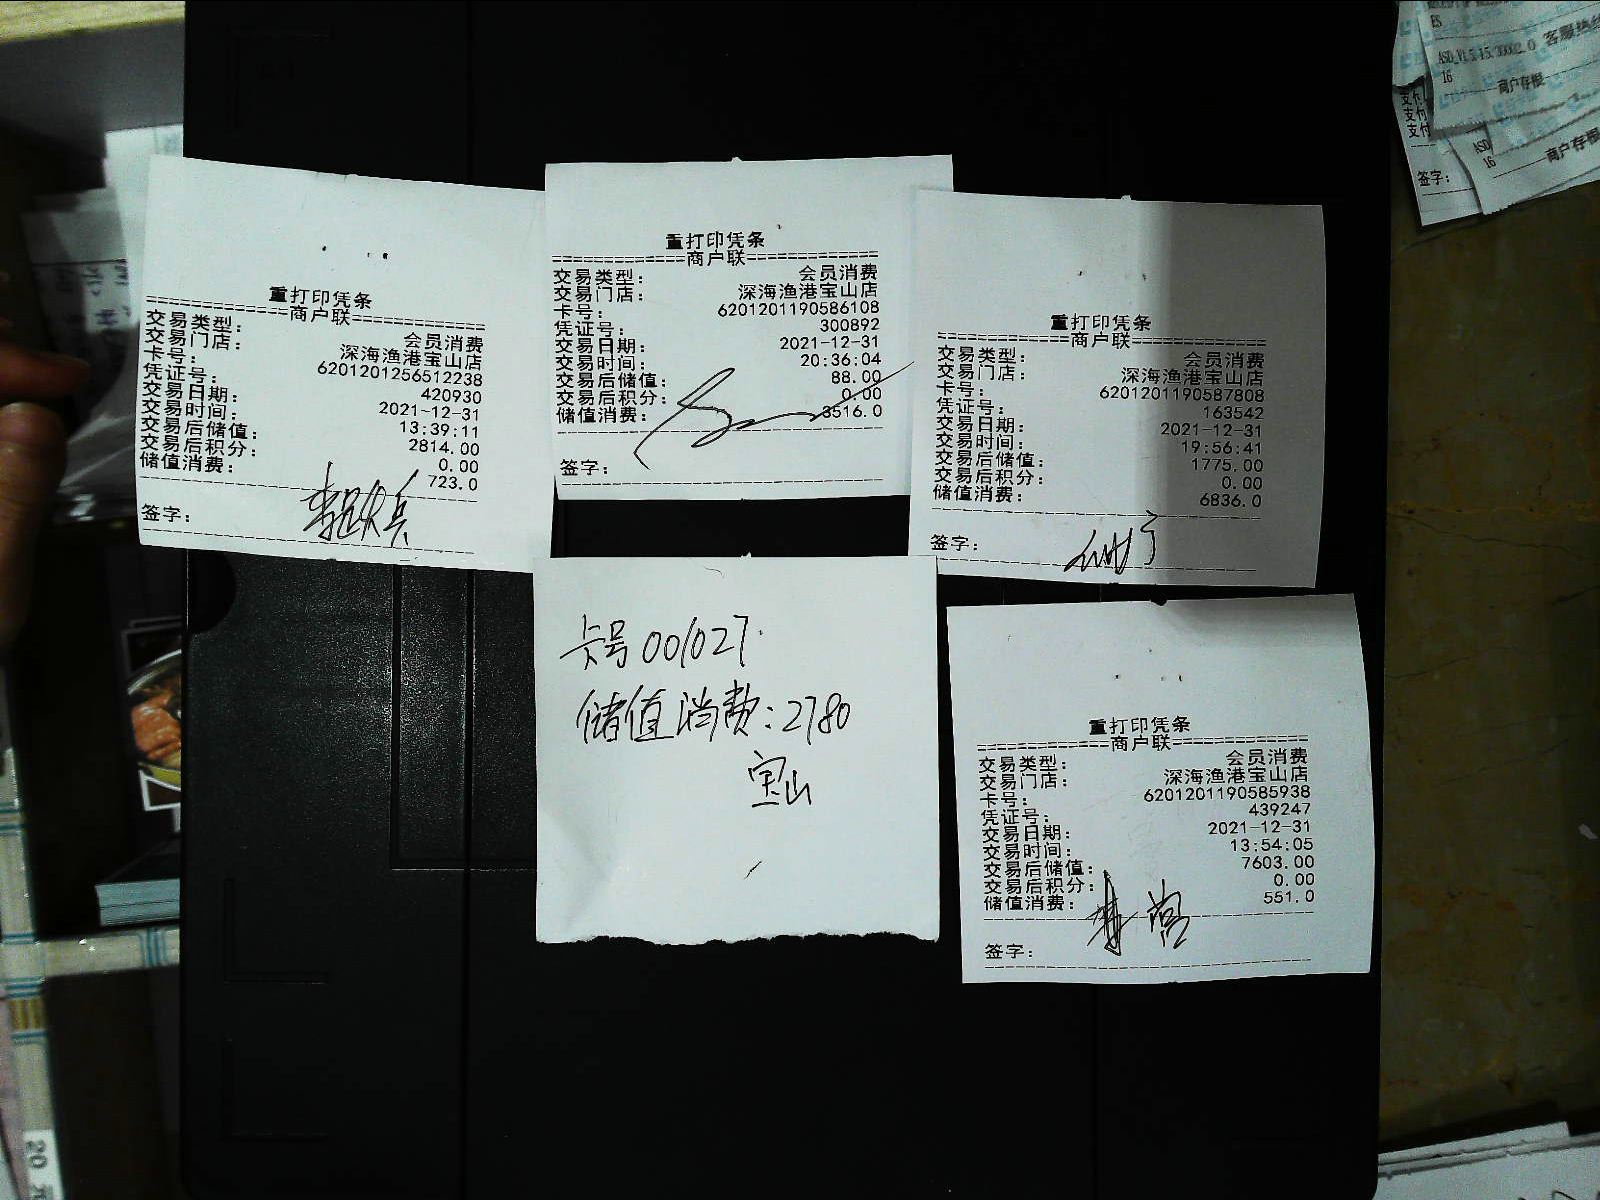 重打印凭条
============商户联============
交易类型： 会员消费
交易门店： 深海渔港宝山店
卡号： 6201201256512238
凭证号： 420930
交易日期： 2021-12-31
交易时间： 13:39:11
交易后储值： 2814.00
交易后积分： 0.00
储值消费： 723.0
签字：
重打印凭条
============商户联============
交易类型： 会员消费
交易门店： 深海渔港宝山店
卡号： 6201201190586108
凭证号： 300892
交易日期： 2021-12-31
交易时间： 20:36:04
交易后储值： 88.00
交易后积分： 0.00
储值消费： 3516.0
签字：
重打印凭条
============商户联============
交易类型： 会员消费
交易门店： 深海渔港宝山店
卡号： 6201201190587808
凭证号： 163542
交易日期： 2021-12-31
交易时间： 19:56:41
交易后储值： 1775.00
交易后积分： 0.00
储值消费： 6836.0
签字：
卡号001027
储值消费：2780
宝山
重打印凭条
============商户联============
交易类型： 会员消费
交易门店： 深海渔港宝山店
卡号： 6201201190585938
凭证号： 439247
交易日期： 2021-12-31
交易时间： 13:54:05
交易后储值： 7603.00
交易后积分： 0.00
储值消费： 551.0
签字：
ES
客服热线
16
商户存根
支付
支付
支付
签字：
ASD
16
商户存根
20 元